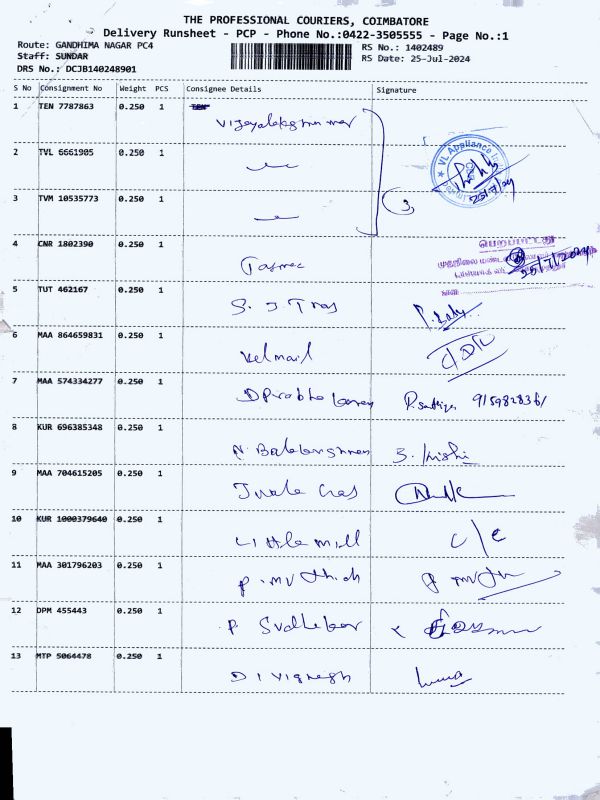 THE PROFESSIONAL COURIERS, COIMBATORE
Delivery Runsheet - PCP - Phone No.:0422-3505555 - Page No.:1
Route: GANDHIMA NAGAR PC4
Staff: SUNDAR
DRS No.: DCJB140248901
RS No.: 1402489
RS Date: 25-Jul-2024
S No Consignment No Weight PCS Consignee Details Signature
1 TEN 7787863 0.250 1
2 TVL 6661905 0.250 1
VL Appliance
25/7/24
3 TVM 10535773 0.250 1
3
4 CNR 1802390 0.250 1
பெறப்பட்டது
Tasmac
25/7/2024
5 TUT 462167 0.250 1
S. J. Tros
6 MAA 864659831 0.250 1
Velmail
7 MAA 574334277 0.250 1
8 KUR 696385348 0.250 1
N. Balakrishnan
9 MAA 704615205 0.250 1
10 KUR 1000379640 0.250 1
Little mill c/e
11 MAA 301796203 0.250 1
P. Muthiah
12 DPM 455443 0.250 1
P. Sudhakar
13 MTP 5064478 0.250 1
D I Vignesh